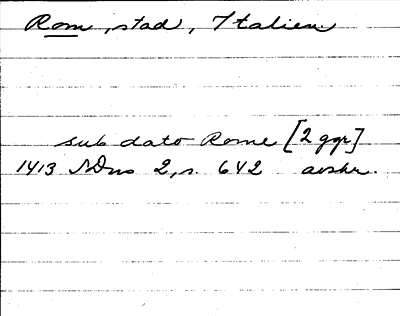 Rom, stad, Italien
sub dato Rome [2 ggr]
1413 SDns 2, s. 642 avskr.